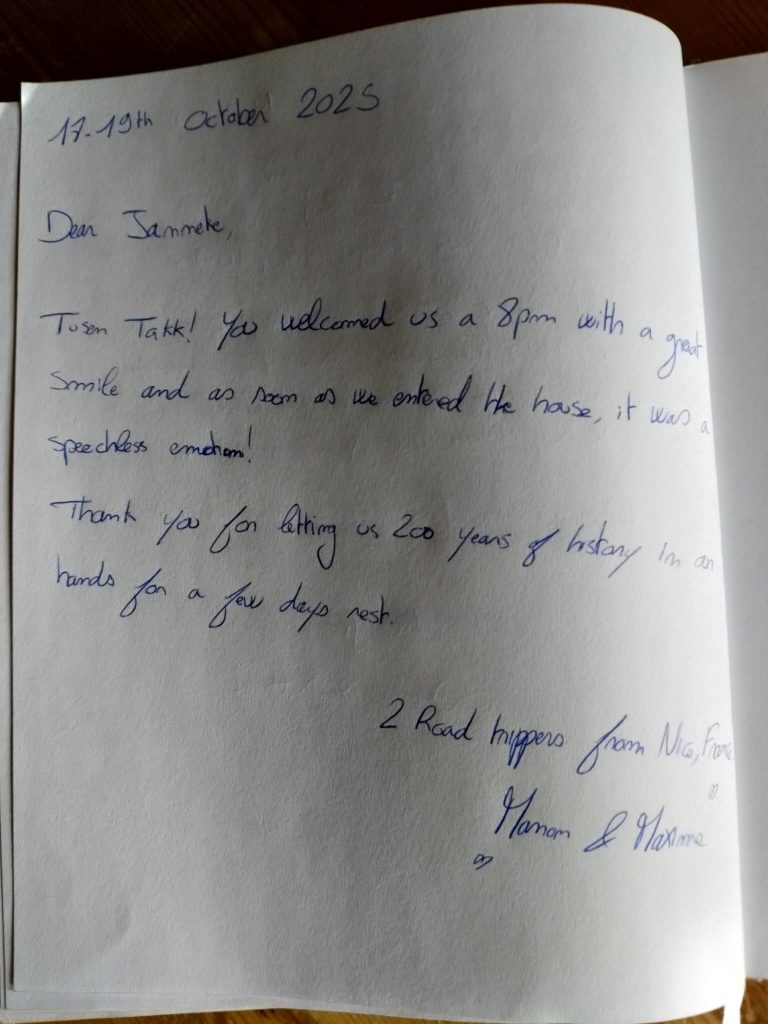 17-19th October 2025
Dear Janneke,
Tusen Takk! You welcomed us a 8pm with a great
smile and as soon as we entered the house, it was a
speechless emotion!
Thank you for letting us 200 years of history in
hands for a few days rest.
2 Road trippers from Nice, France
Manon & Maxime